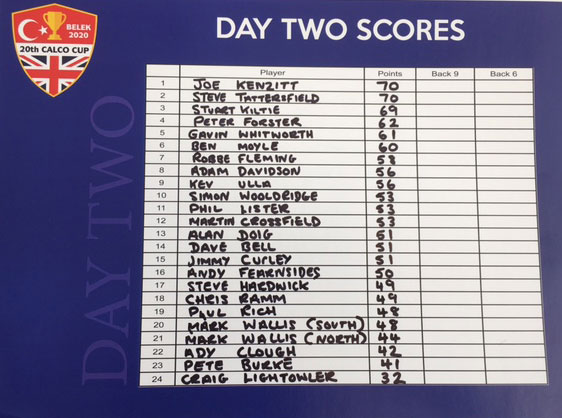 BELEK
2020
20th CALCO CUP
DAY TWO SCORES
DAY TWO
Player Points Back 9 Back 6
1 JOE KENZITT 70
2 STEVE TATTERSFIELD 70
3 STUART KILTIE 69
4 PETER FORSTER 62
5 GAVIN WHITWORTH 61
6 BEN MOYLE 60
7 ROBBE FLEMING 58
8 ADAM DAVIDSON 56
9 KEV ULLA 56
10 SIMON WOOLDRIDGE 53
11 PHIL LISTER 53
12 MARTIN CROSSFIELD 53
13 ALAN DOIG 51
14 DAVE BELL 51
15 JIMMY CURLEY 51
16 ANDY FEARNSIDES 50
17 STEVE HARDWICK 49
18 CHRIS RAMM 49
19 PAUL RICH 48
20 MARK WALLIS (SOUTH) 48
21 MARK WALLIS (NORTH) 44
22 ADY CLOUGH 42
23 PETE BURKE 41
24 CRAIG LIGHTOWLER 32